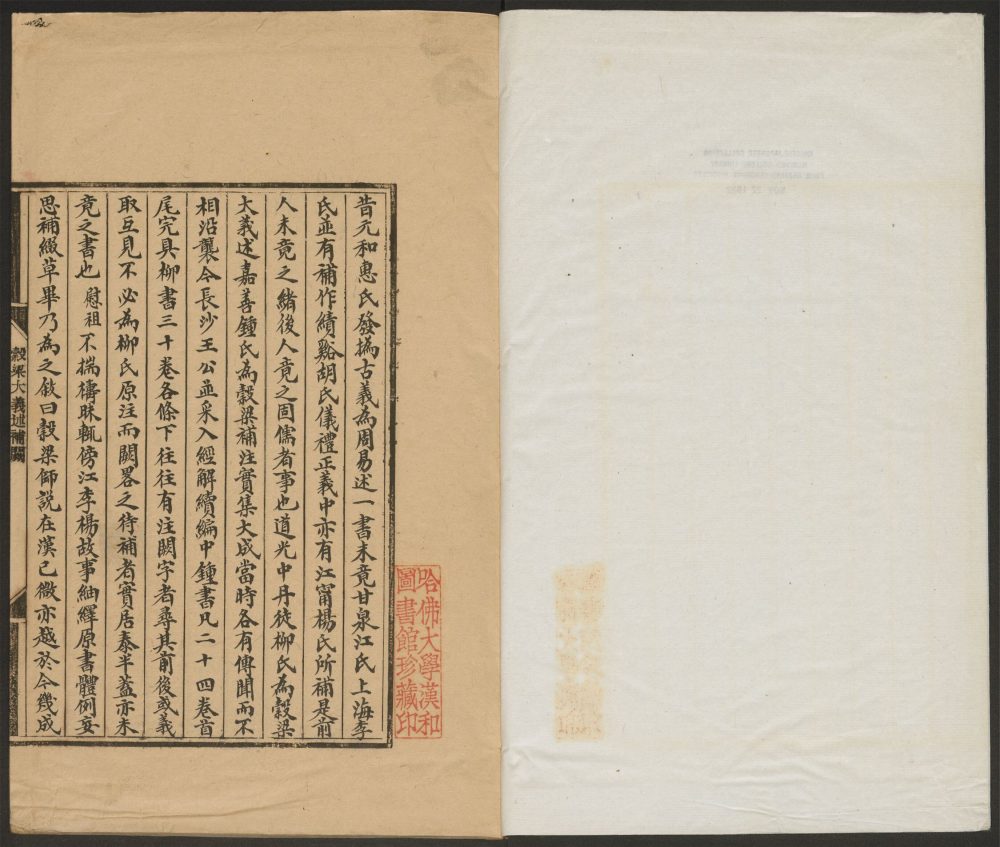 昔元和惠氏發撝古義為周易述一書未竟甘泉江氏上海李
氏並有補作績谿胡氏儀禮正義中亦有江甯楊氏所補是前
人未竟之緒後人竟之固儒者事也道光中丹徒柳氏為穀梁
大義述嘉善鍾氏為穀梁補注實集大成當時各有傳聞而不
相沿襲今長沙王公並采入經解續編中鍾書凡二十四卷首
尾完具柳書三十卷各條下往往有注闕字者尋其前後或義
取互見不必為柳氏原注而闕畧之待補者實居泰半蓋亦未
竟之書也慰祖不揣檮昧輒傍江李楊故事紬繹原書體例妄
思補綴草畢乃為之敘曰穀梁師說在漢已微亦越於今幾成
穀梁大義述補闕
哈佛大學漢和
圖書館珍藏印
NOV 27 1933